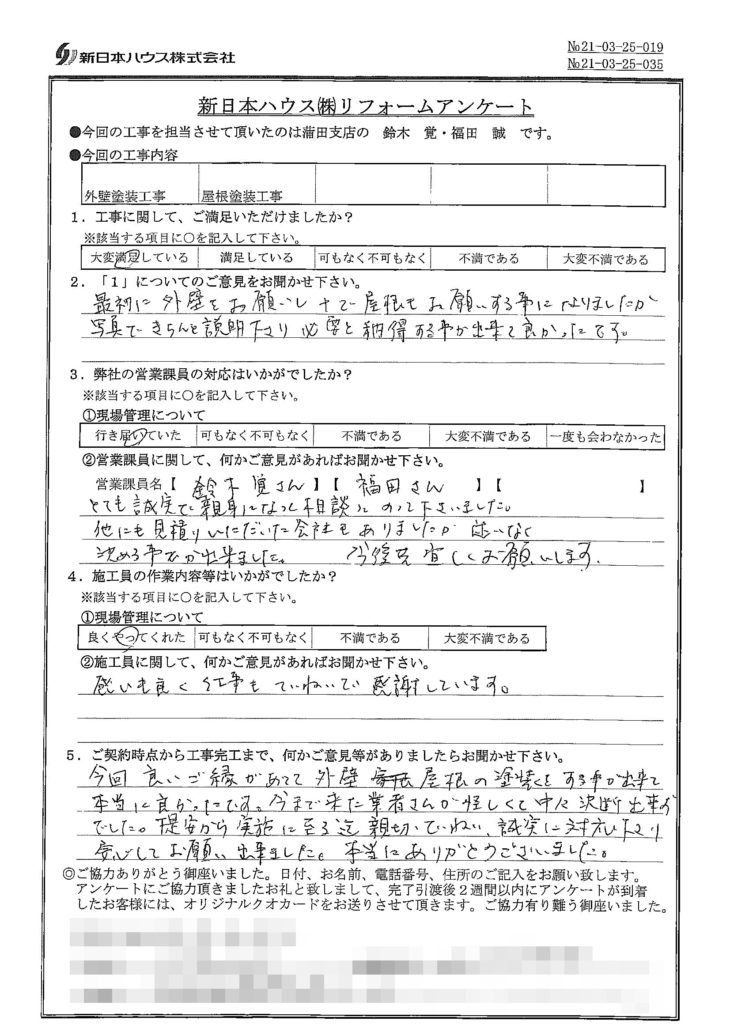 新日本ハウス株式会社
№21-03-25-019
№21-03-25-035
新日本ハウス㈱リフォームアンケート
●今回の工事を担当させて頂いたのは蒲田支店の 鈴木 覚・福田 誠 です。
●今回の工事内容
外壁塗装工事 屋根塗装工事
1．工事に関して、ご満足いただけましたか？
※該当する項目に○を記入して下さい。
大変満足している 満足している 可もなく不可もなく 不満である 大変不満である
2．「1」についてのご意見をお聞かせ下さい。
最初に外壁をお願いし 屋根もお願いする事になりましたが
写真できちんと説明下さり必要と納得する事が出来て良かったです。
3．弊社の営業課員の対応はいかがでしたか？
※該当する項目に○を記入して下さい。
①現場管理について
行き届いていた 可もなく不可もなく 不満である 大変不満である 一度も会わなかった
②営業課員に関して、何かご意見があればお聞かせ下さい。
営業課員名【 鈴木覚さん 】【 福田さん 】【 】
とても誠実で親身になって相談にのって下さいました。
他にも見積りいただいた会社もありましたが 迷いなく
決める事が出来ました。 今後も宜しくお願いします。
4．施工員の作業内容等はいかがでしたか？
※該当する項目に○を記入して下さい。
①現場管理について
良くやってくれた 可もなく不可もなく 不満である 大変不満である
②施工員に関して、何かご意見があればお聞かせ下さい。
感じも良く仕事もていねいで感謝しています。
5．ご契約時点から工事完工まで、何かご意見等がありましたらお聞かせ下さい。
今回良いご縁があって外壁 屋根の塗装をする事が出来て
本当に良かったです。今まで来た業者さんが怪しくて中々決断出来ず
でした。提案から実施に至る迄親切、ていねい、誠実に対応下さり
安心してお願い出来ました。本当にありがとうございました。
◎ご協力ありがとう御座いました。日付、お名前、電話番号、住所のご記入をお願い致します。
アンケートにご協力頂きましたお礼と致しまして、完了引渡後2週間以内にアンケートが到着
したお客様には、オリジナルクオカードをお送りさせて頂きます。ご協力有り難う御座いました。